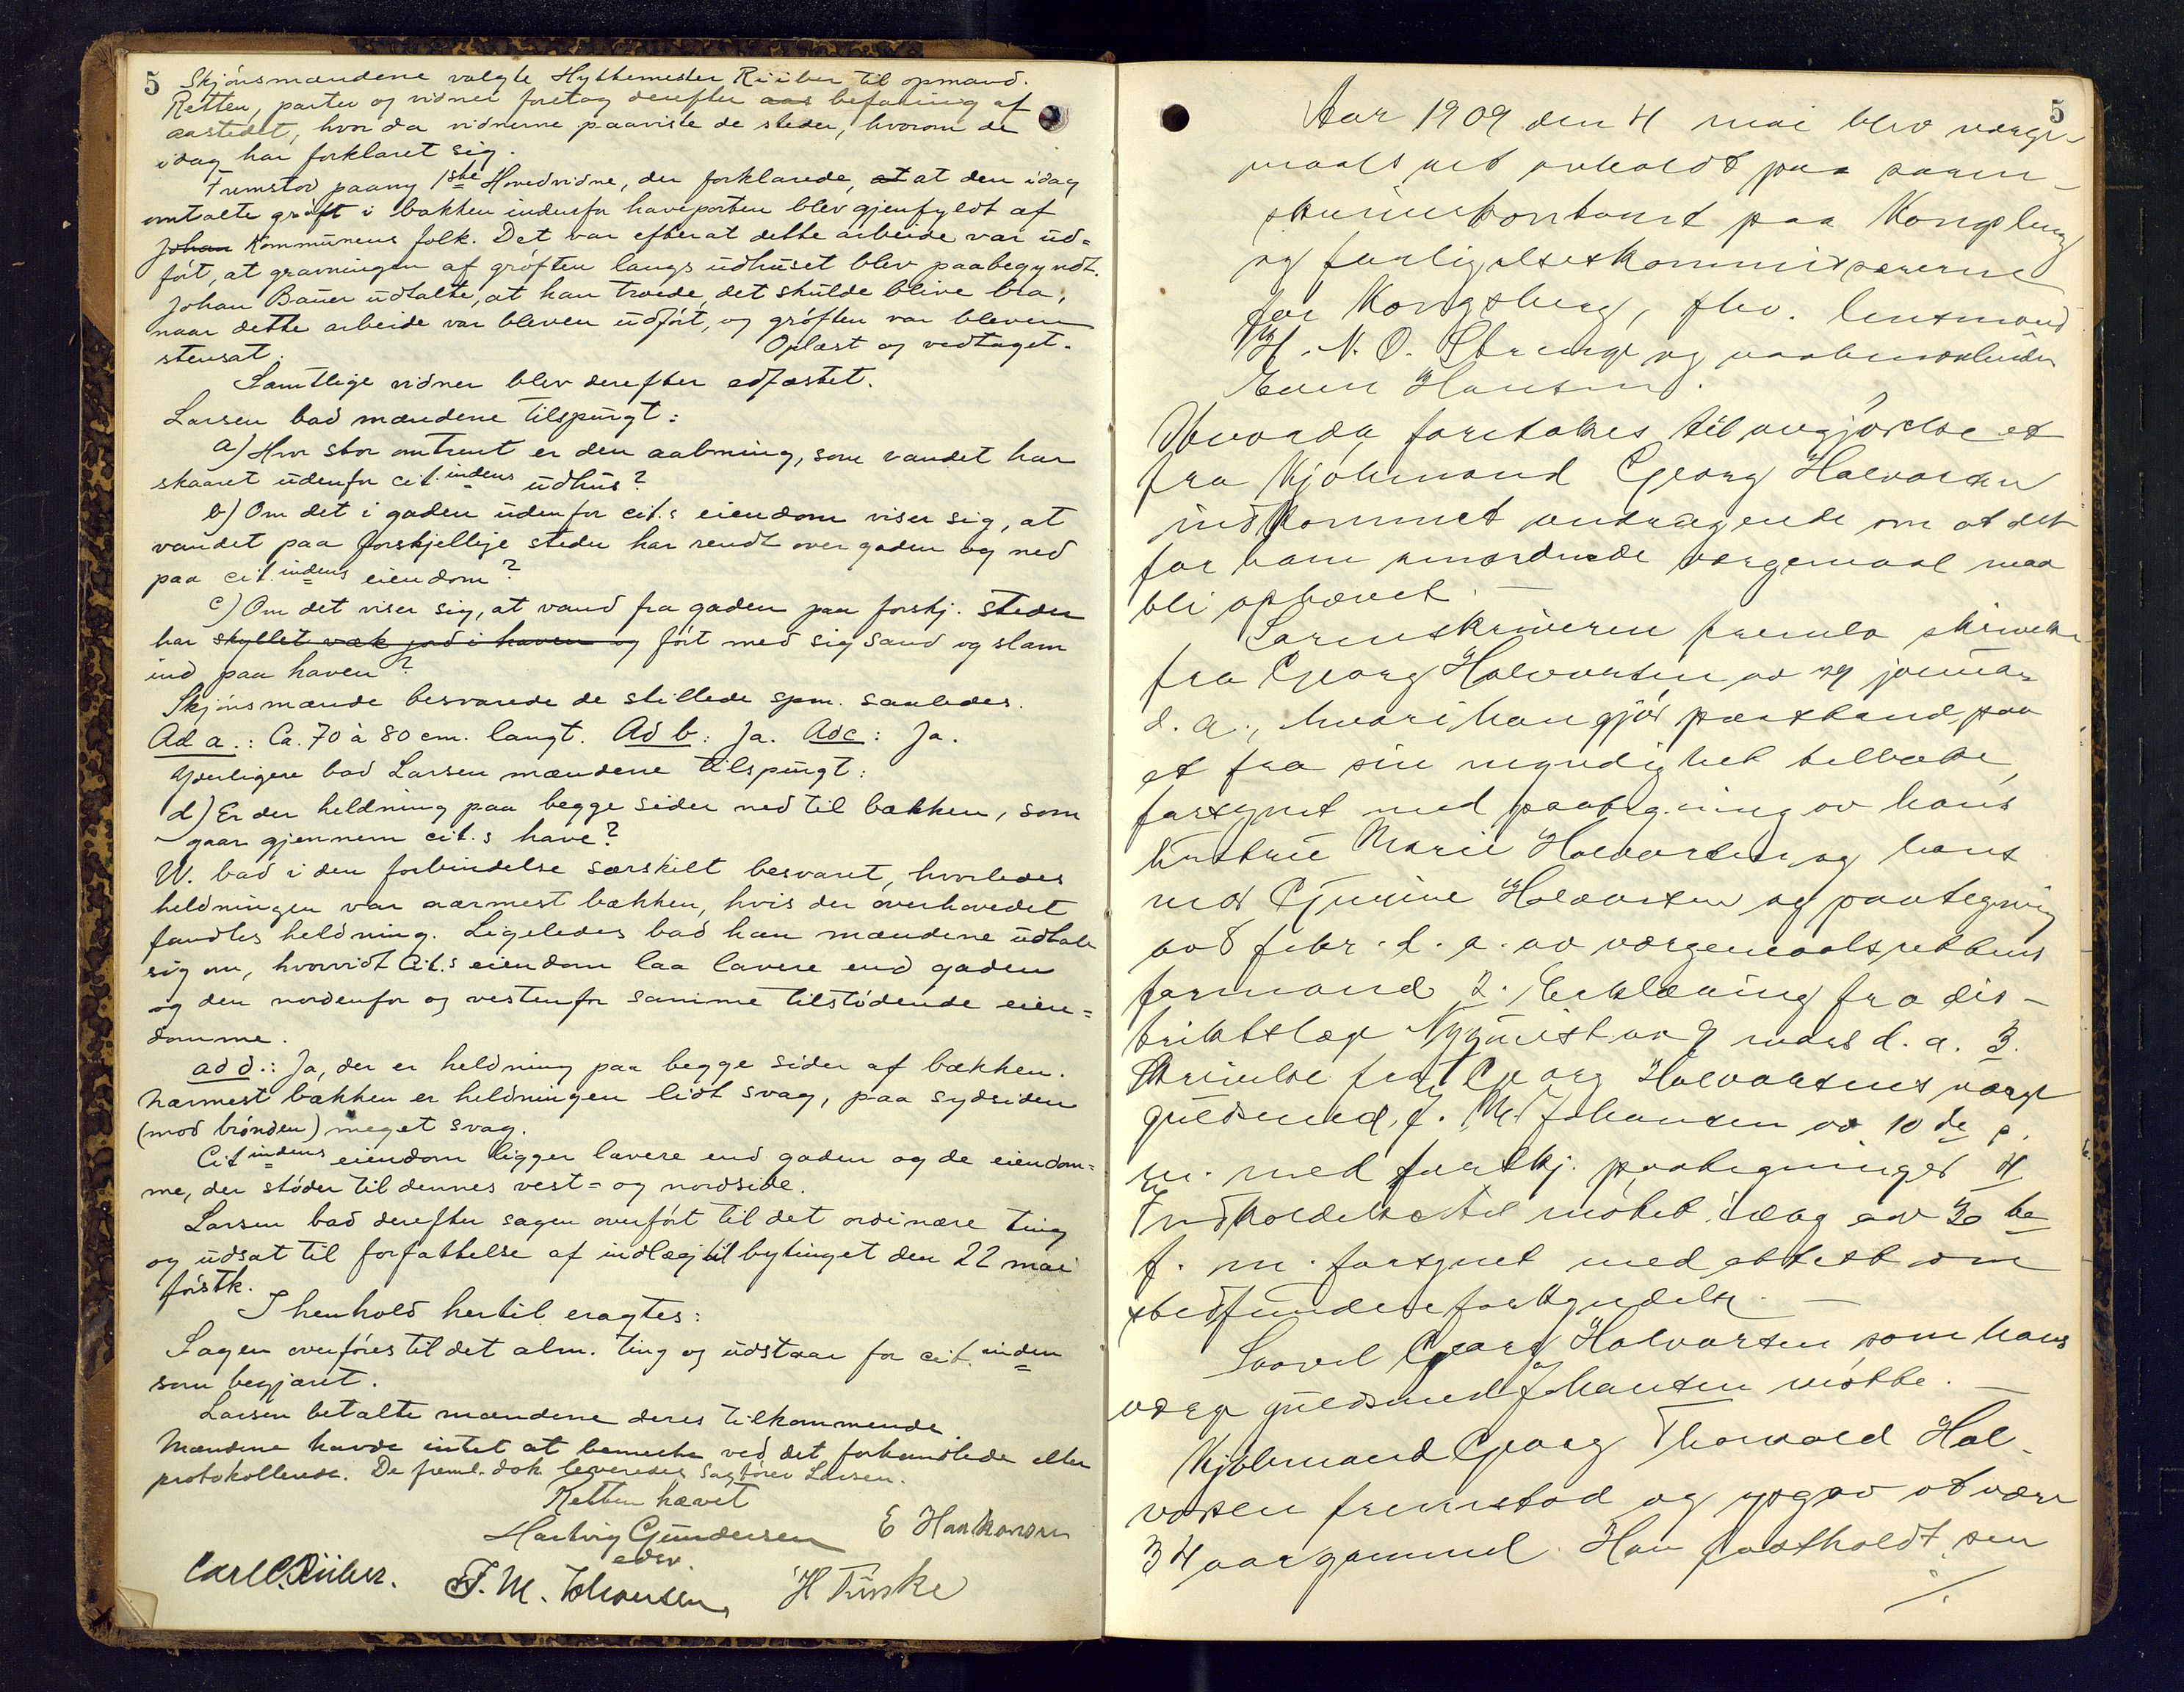 5
Skjónsmændene valgte Hyttemester Riiber til opmand.
Retten, parter og vidner foretog derefter aas befaring af
aastedet, hvor da vidnerne paaviste de steder, hvorom de
idag har forklaret sig.
Fremstod paany 1ste Hovedvidne, der forklarede, at at den idag
omtalte grøft i bakken indenfor haveporten blev gjenfyldt af
Johan Kommunens folk. Det var efterat dette arbeide var ud=
ført, at gravningen af grøften langs udhuset blev paabegyndt.
Johan Bauer udtalte, at han troede, det skulde blive bra,
naar dette arbeide var bleven udført, og grøften var bleven
stensat. Oplæst og vedtaget.
Samtlige vidner blev derefter edfæstet.
Larsen bad mændene tilspurgt:
a) Hvor stor omtrent er den aabning, som vandet har
skaaret udenfor cit.indens udhus?
b) Om det i gaden udenfor cit.s eiendom viser sig, at
vandet paa forskjellige steder har rendt over gaden og ned
paa cit.indens eiendom?
c) Om det viser sig, at vand fra gaden paa forskj. steder
har skyllet væk jord i haven og ført med sig sand og slam
ind paa haven?
Skjønsmænde besvarede de stillede spm. saaledes.
Ad a.: Ca. 70 à 80 cm. langt. Ad b: Ja. Ad c: Ja.
Yderligere bad Larsen mændene tilspurgt:
d) Er der heldning paa begge sider ned til bækken, som
gaar gjennem cit.s have?
W. bad i den forbindelse særskilt besvaret, hvorledes
heldningen var nærmest bækken, hvis der overhovedet
fandtes heldning. Ligeledes bad han mændene udtale
sig om, hvorvidt Cit.s eiendom laa lavere end gaden
og den nordenfor og vestenfor samme tilstødende eien=
domme.
ad d.: Ja, der er heldning paa begge sider af bækken.
Nærmest bækken er heldningen lidt svag, paa sydsiden
(mod brønden) meget svag.
Cit.indens eiendom ligger lavere end gaden og de eiendom=
me, der støder til dennes vest= og nordside.
Larsen bad derefter sagen overført til det ordinære ting
og udsat til forfattelse af indlæg til bytinget den 22 mai
førstk.
I henhold hertil eragtes:
Sagen overføres til det alm. ting og udstaar for cit.inden
som begjæret.
Larsen betalte mændene deres tilkommende.
Mændene havde intet at bemerke ved det forhandlede eller
protokollerede. De freml. dok. leveredes Sagfører Larsen.
Retten hævet
Hartvig Gundersen
edsv.
E Haakonsen
Carl C. Riiber. F. M. Johansen H Funke
5
Aar 1909 den 4 mai blev værge-
maalsret avholdt paa soren-
skriverkontoret paa Kongsberg
og forligelseskommissærerne
for Kongsberg, fhv. lensmand
H. N. O. Strenge og vaabenarbeider
Even Hansen.
Hvorda foretokes til avgjørelse et
fra Kjøbmand Georg Halvorsen
indkommet andragende om at det
for ham anordnede værgemaal maa
bli ophævet. –
Sorenskriveren fremla skrivelse
fra Georg Halvorsen av 29 januar
d. a., hvori han gjør paastand paa
at faa sin myndighet tilbake,
forsynet med paategning av hans
hustru Marie Halvorsen og hans
mor Gunine Halvorsen og paategning
av 8 febr. d. a. av værgemaalsrettens
formand 2. Erklæring fra dis-
triktslæge Nyquist av 9 mars d. a. 3.
Skrivelse fra Georg Halvorsens værge
guldsmed F. M. Johansen av 10de p.
m. med forskj. paategninger 4
Indkaldelse til møtet idag av 30te
f. m. forsynet med attest om
stedfunden forkyndelse. –
Saavel Georg Halvorsen som hans
værge guldsmed Johansen møtte. –
Kjøbmand Georg Thorvald Hal-
vorsen fremstod og opgav at være
34 aar gammel. Han fastholdt sin
./.